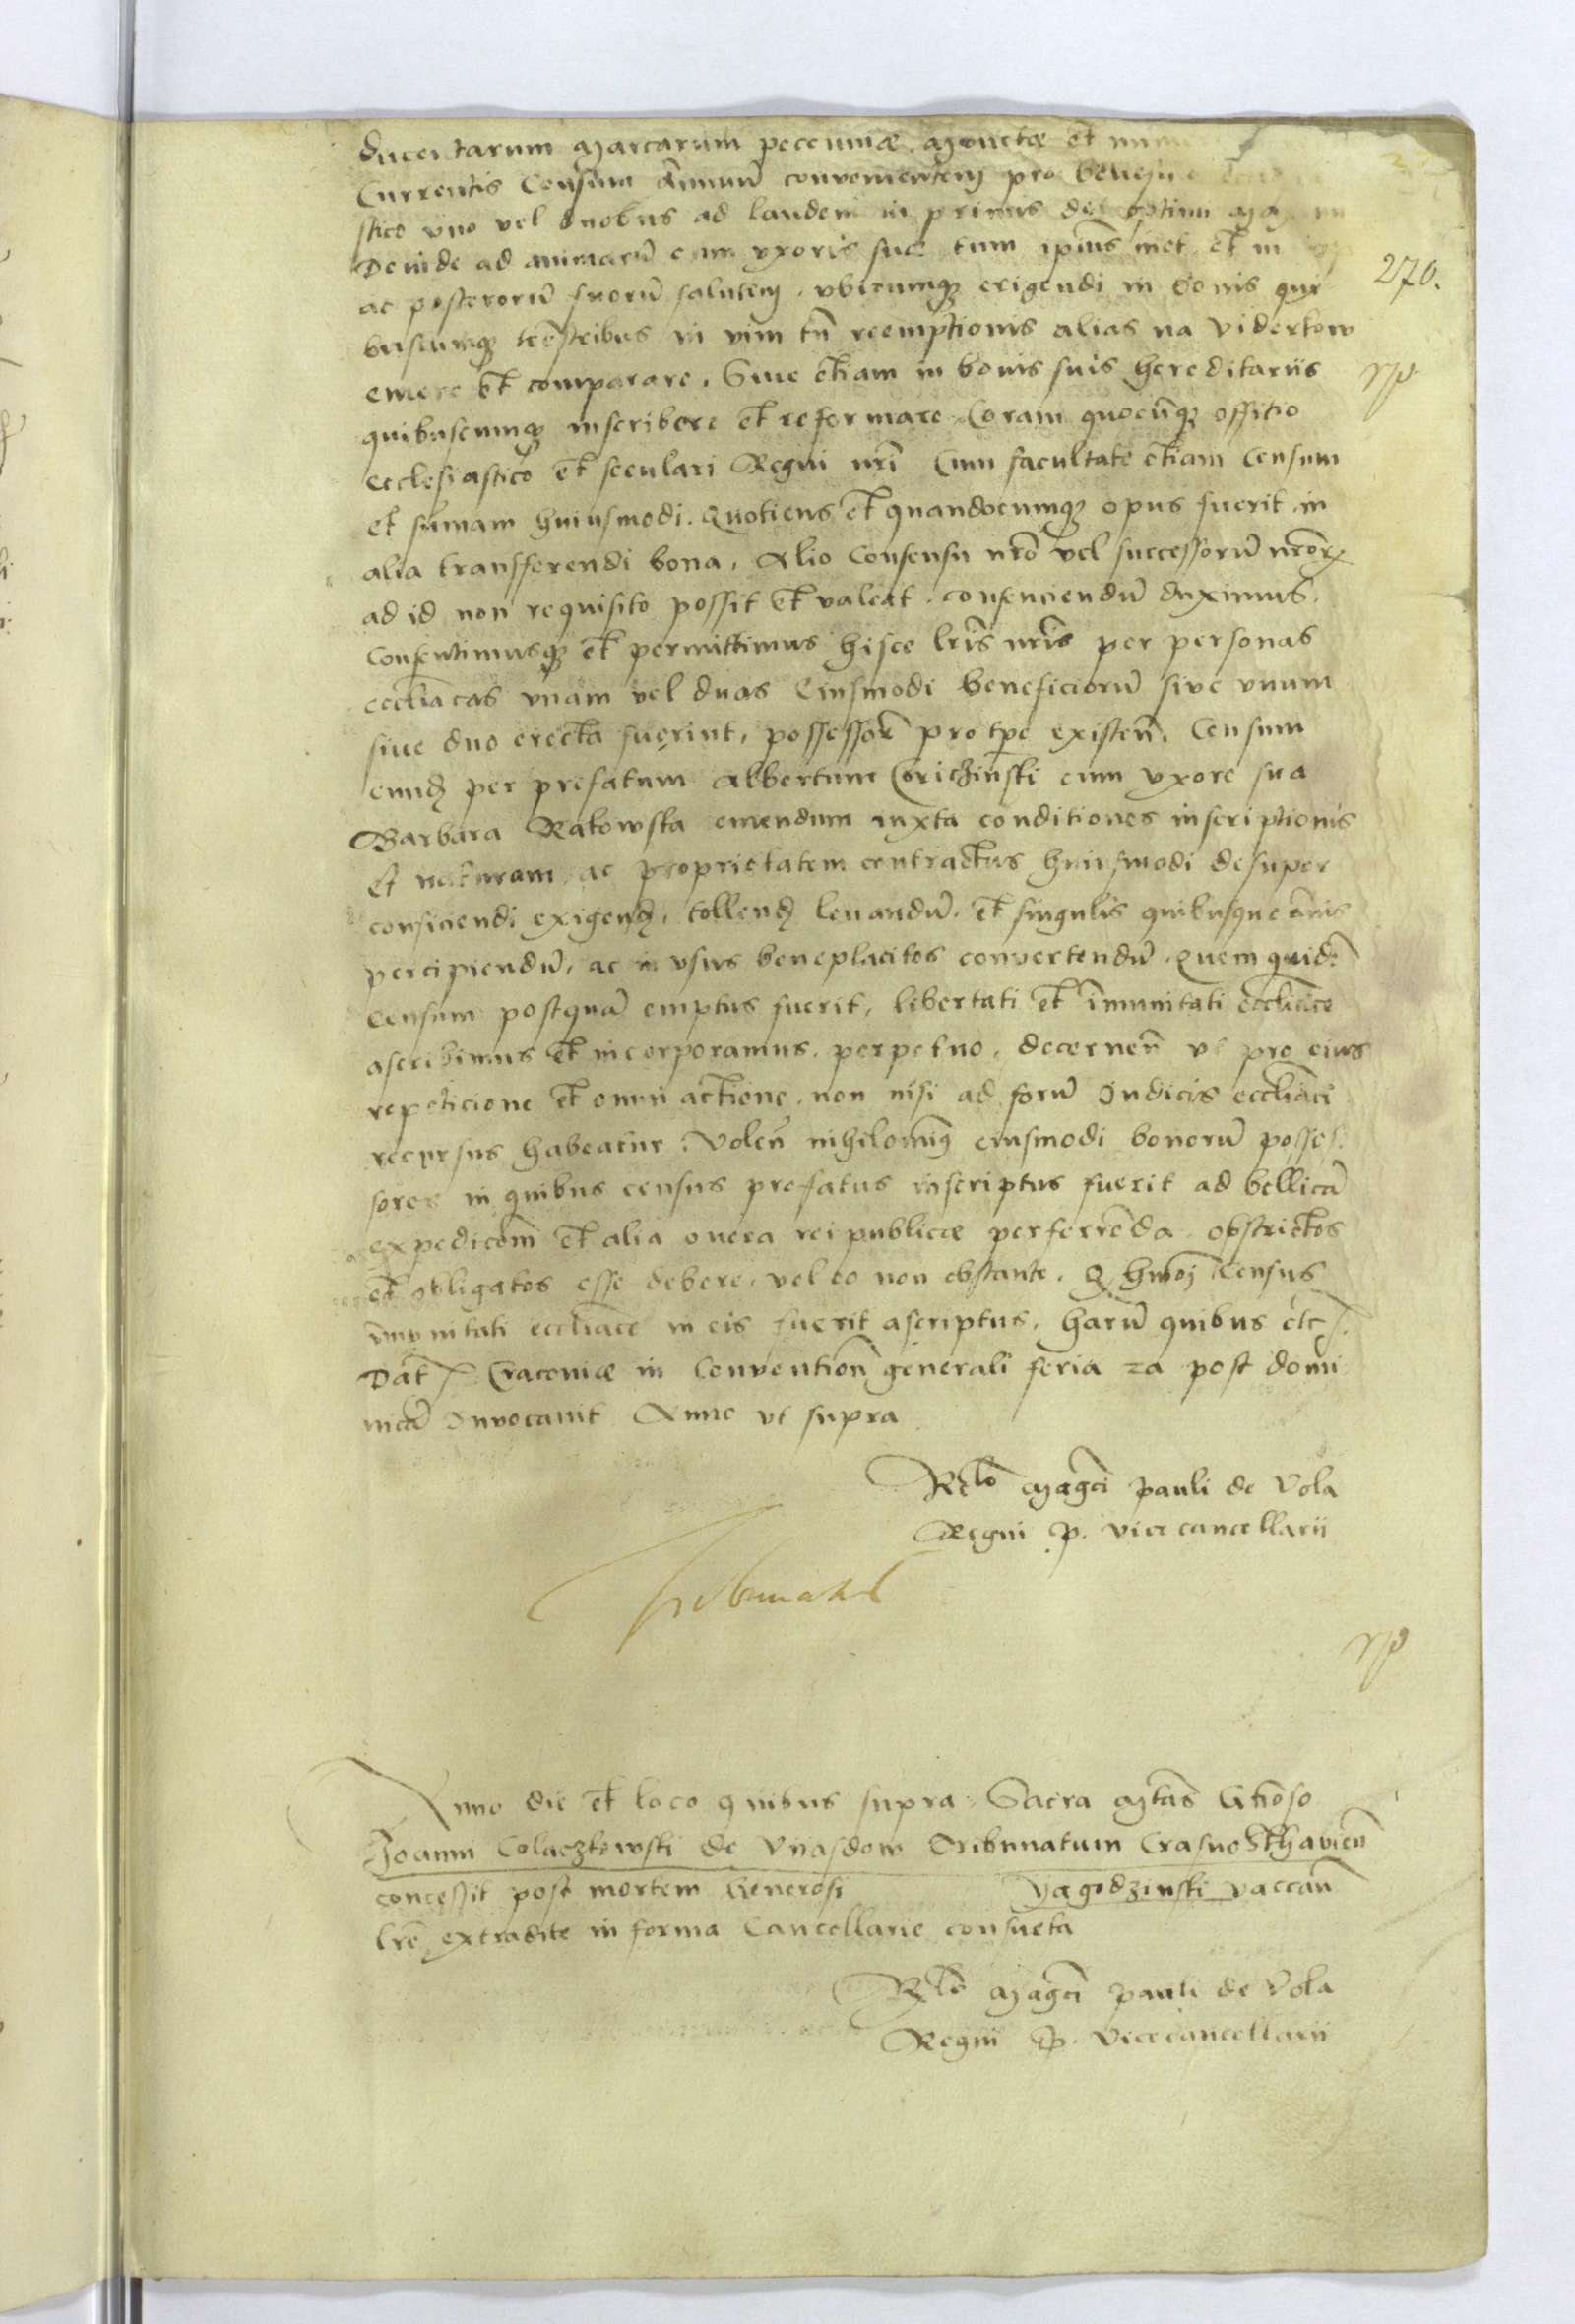 ducentarum marcarum pecuniæ, monetæ et
Currentis Censum annuū convenientem pro
stico vno vel duobus ad laudem in primis dei optimi
Deinde ad animarū cum vxoris suæ tum ipius met et
ac posterorū suorū salutem, vbicumq3 erigendi in bonis qui
270.
buscumq3 terrestribus in vim tn̄ reemptionis alias na viderkow
emere et comparare, Siue etiam in bonis suis hereditariis
quibuscumq3 inscribere et reformare Coram quocūq3 offitio
ecclesiastico et seculari Regni nr̄i Cum facultate etiam Censum
et sūmam huiusmodi, Quotiens et quandocumq3 opus fuerit in
alia transferendi bona, Alio Consensu nrō vel successorū nrōrꝝ
ad id non requisito possit et valeat, consenciendū duximus,
Consentimusq3 et permittimus hisce lr̄is nr̄is per personas
eccliacas vnam vel duas Eiusmodi beneficiorū sive vnum
siue duo erecta fuerint, possessor̄ pro tpe existen̄, Censum
eund per prefatum Albertum Coriczinski cum vxore sua
Barbara Rakowska emendum iuxta conditiones inscriptionis
et naturam ac proprietatem contractus huiusmodi desuper
conficiendi exigend, tollend leuandū, et singulis quibusque ānis
percipiendū, ac in vsus beneplacitos convertendū, Quem quidē
Censum postquā emptus fuerit, libertati et īmunitati eccliāce
ascribimus et incorporamus, perpetuo, decernen̄ vt pro eius
repeticione et omni actione, non nisi ad forū Iudicis eccliāci
recursus habeatur, Volen̄ nihilomin9 eiusmodi bonorū posses
sores in quibus census prefatus inscriptus fuerit ad bellicā
expedicōm et alia onera reipublicæ perferrenda, obstrictos
et obligatos esse debere, vel eo non obstante, Q hmōi Census
īmvnitati eccliāce in eis fuerit ascriptus, harū quibus etc
Dat Cracouiæ in Conventiōn generali feria 2a post domi
nicā Invocauit Anno vt supra
Relō Mag̃ci Pauli de Vola
Regni P. vicecancellarii
Anno die et loco quibus supra, Sacra Mtās Gnōso
Joanni Colaczkowski de Vyasdow Tribunatum CrasnoSthavien̄
concessit post mortem Generosi Yagodzinski vaccan̄
lrē extradite in forma Cancellarie consueta
Relō Mag̃ci Pauli de Vola
Regni P. Vicecancellarii